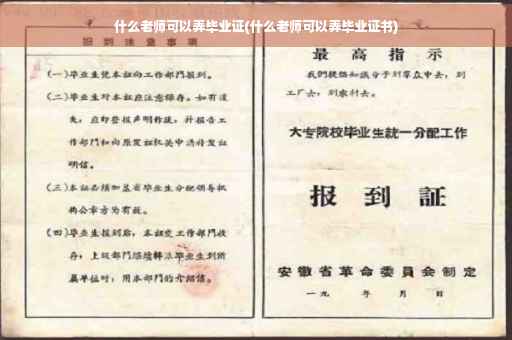 什么老师可以弄毕业证(什么老师可以弄毕业证书)
报到注意事项
(一)毕业生凭本证向工作部门报到。
(二)毕业生对本证应注意保存。如有遗
失,应即登报声明作废,并报告工
作部门和向原发证机关申请补发证
明信。
(三)本证必须加盖省毕业生分配领导机
构公章方为有效。
(四)毕业生报到后,本证交工作部门收
存;上级部门继续转派毕业生到所
属单位时,用本部门的介绍信。
最高指示
我们提倡知识分子到群众中去,到
工厂去,到农村去。
大专院校毕业生統一分配工作
报到証
安徽省革命委員会制定
一九 年 月 日